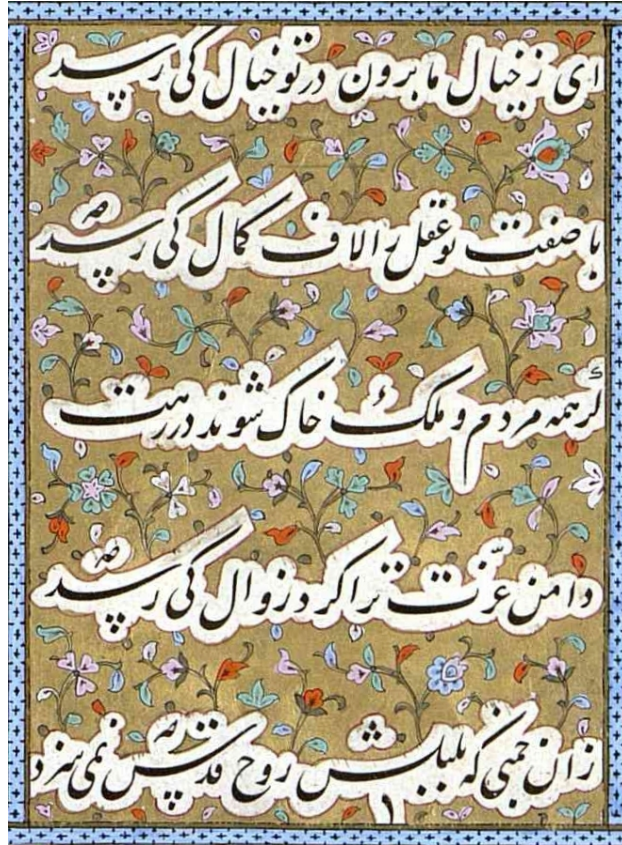 ای ز خیال ما برون در تو خیال کی رسد
با صفت تو عقل را لاف کمال کی رسد
گر همه مردم و ملک خاک شوند در رهت
دامن عزّت ترا کرد زوال کی رسد
زان چمنی که بلبلش روح قدس نمی سزد